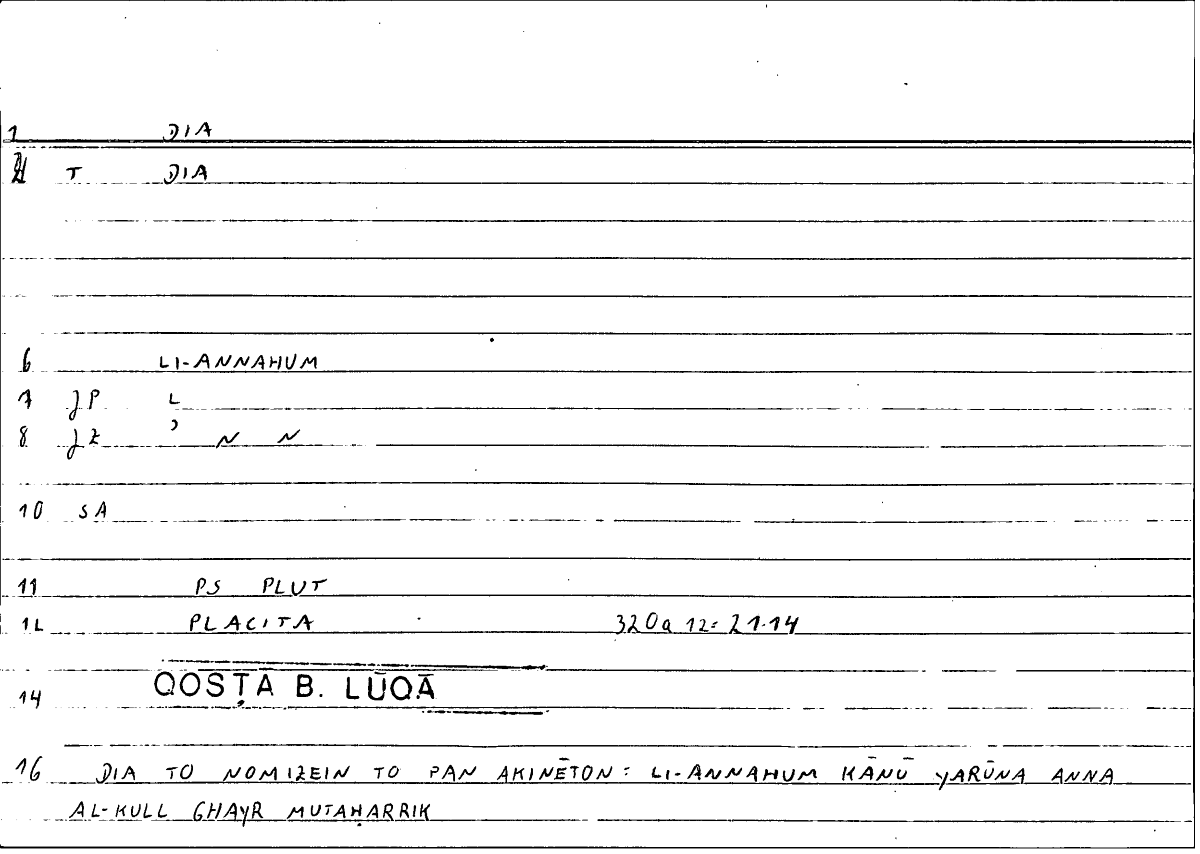 1 DIA
T DIA
6 LI-ANNAHUM
7 JP L
8 JZ ʾ N N
10 SA
11 PS PLUT
12 PLACITA 320a 12 = 21.14
14 QOSṬĀ B. LŪQĀ
16 DIA TO NOMIZEIN TO PAN AKINĒTON : LI-ANNAHUM KĀNŪ YARŪNA ANNA
AL-KULL GHAYR MUTAḤARRIK